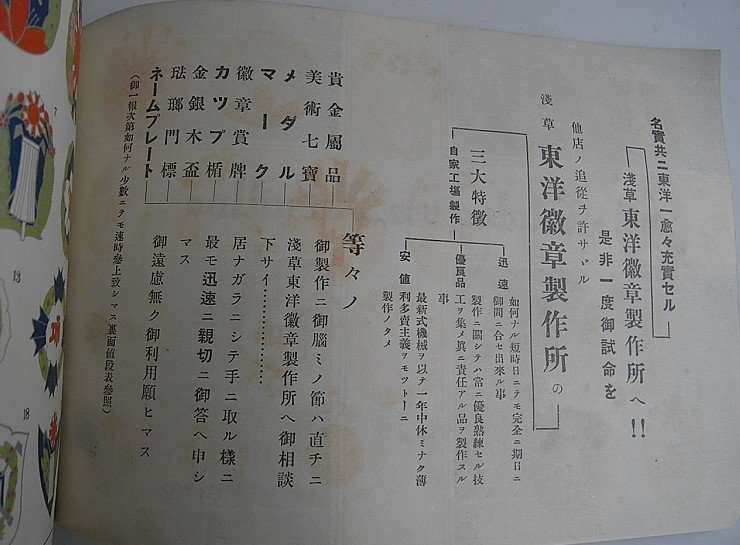 名實共ニ東洋一愈々充實セル
淺草東洋徽章製作所へ!!
是非一度御試命を
他店ノ追從ヲ許サヾル
淺草 東洋徽章製作所の
三大特徴
自家工場製作
迅速
如何ナル短時日ニテモ完全ニ期日ニ
御間ニ合セ出來ル事
優良品
製作ニ關シテハ常ニ優良熟練セル技
工ヲ集メ眞ニ責任アル品ヲ製作スル
事
安値
最新式機械ヲ以テ一年中休ミナク薄
利多賣主義ヲモツトーニ
製作ノタメ
貴金屬品
美術七寶
メダル
マーク
徽章賞牌
カツプ楯
金銀木盃
琺瑯門標
ネームプレート
等々ノ
御製作ニ御腦ミノ節ハ直チニ
淺草東洋徽章製作所ヘ御相談
下サイ…………
居ナガラニシテ手ニ取ル樣ニ
最モ迅速ニ親切ニ御答ヘ申シ
マス
御遠慮無ク御利用願ヒマス
(御一報次第如何ナル少數ニテモ速時參上致シマス裏面値段表參照)
7
13
18